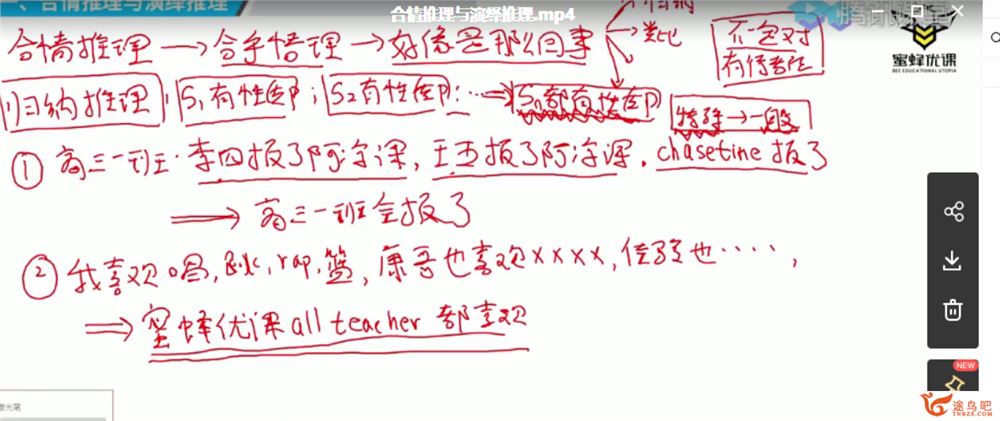 、合情推理与演绎推理
合情推理与演绎推理.mp4
腾讯课堂
合情推理 → 合乎情理 → 好像是那么回事
类比
不一定对
有待考証
蜜蜂优课
BEE EDUCATIONAL UTOPIA
归纳推理: S₁有性质P; S₂有性质P; … ⇒ Sₙ都有性质P
特殊→一般
① 高三一班: 李四报了阿淳课, 王五报了阿淳课, chasetine 报了
⟹ 高三一班全报了
② 我喜欢唱, 跳, rap, 篮, 康哥也喜欢××××, 佳琦也····,
⟹ 蜜蜂优课 all teacher 都喜欢
NEW
激光笔
途鸟吧
TNBZS.COM